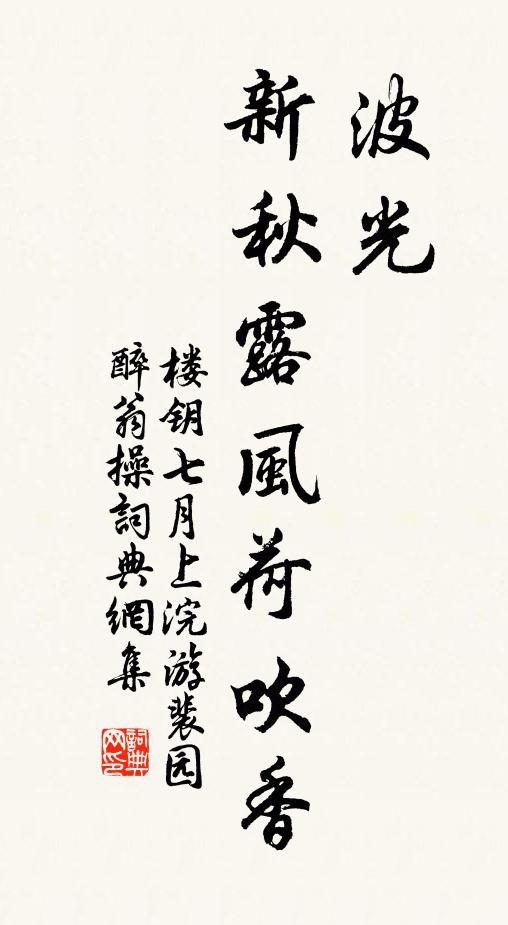 波光
新秋露風荷吹香
楼钥七月上浣游裴园
醉翁操詞典網集
詞典网印